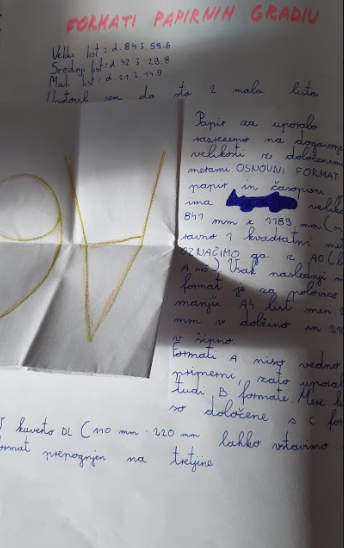 FORMATI PAPIRNIH GRADIV
Veliki list: d. 84 3. 59.6
Srednji list: d. 42 š. 29.8
Mali list: d. 21 š. 14.9
sem da sta 2 mala lista
Papir za uporabo
razrežemo na dogovorje
velikosti z določenimi
merami. OSNOVNI FORMAT
papir in časopisni
ima veliko
841 mm x 1189 mm (
ravno 1 kvadratni me
OZNAČIMO ga z A0. (
A nič) Vsak naslednji
format je za polovico
manjši A4 list meri
mm v dolžino in 21
v širino.
Formati A niso vedno
primerni, zato upora
tudi B formate. Mere
so določene s C for
V kuverto DL (110 mm - 220 mm lahko vstavimo
format prepognjen na tretjine